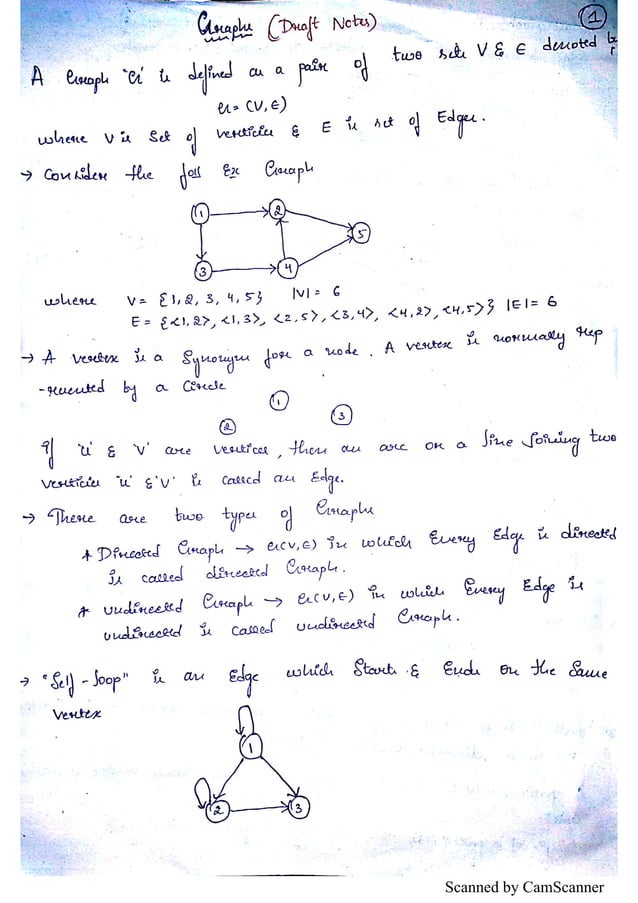 Graphs (Draft Notes)
1
A Graph 'G' is defined as a pair of two sets V & E denoted by
G = (V, E)
where V is set of verticies & E is set of Edges.
→ Consider the foll Ex Graph
1 2
5
3 4
where V = {1, 2, 3, 4, 5} |V| = 6
E = {<1, 2>, <1, 3>, <2, 5>, <3, 4>, <4, 2>, <4, 5>} |E| = 6
→ A vertex is a Synonym for a node. A vertex is normally rep
-resented by a Circle
1
2 3
If 'u' & 'v' are vertices, then an arc or a line joining two
verticies 'u' & 'v' is called an Edge.
→ There are two types of Graphs
* Directed Graph → G(V, E) in which Every Edge is directed
is called directed Graph.
* undirected Graph → G(V, E) in which Every Edge is
undirected is called undirected Graph.
→ "Self-loop" is an Edge which Starts & Ends on the Same
Vertex
1
2 3
Scanned by CamScanner